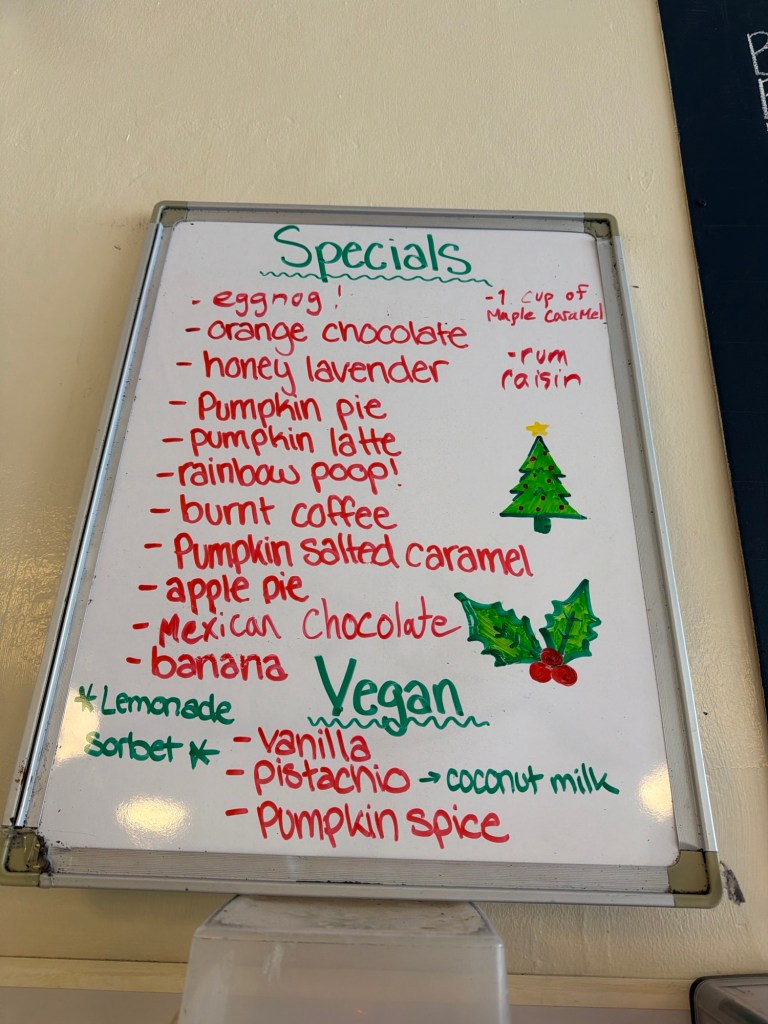 Specials
- eggnog!
- orange chocolate
- honey lavender
- Pumpkin pie
- pumpkin latte
- rainbow poop!
- burnt coffee
- Pumpkin salted caramel
- apple pie
- Mexican Chocolate
- banana
- 1 cup of
Maple Caramel
- rum
raisin
Vegan
* Lemonade
sorbet *
- vanilla
- pistachio → coconut milk
- Pumpkin spice